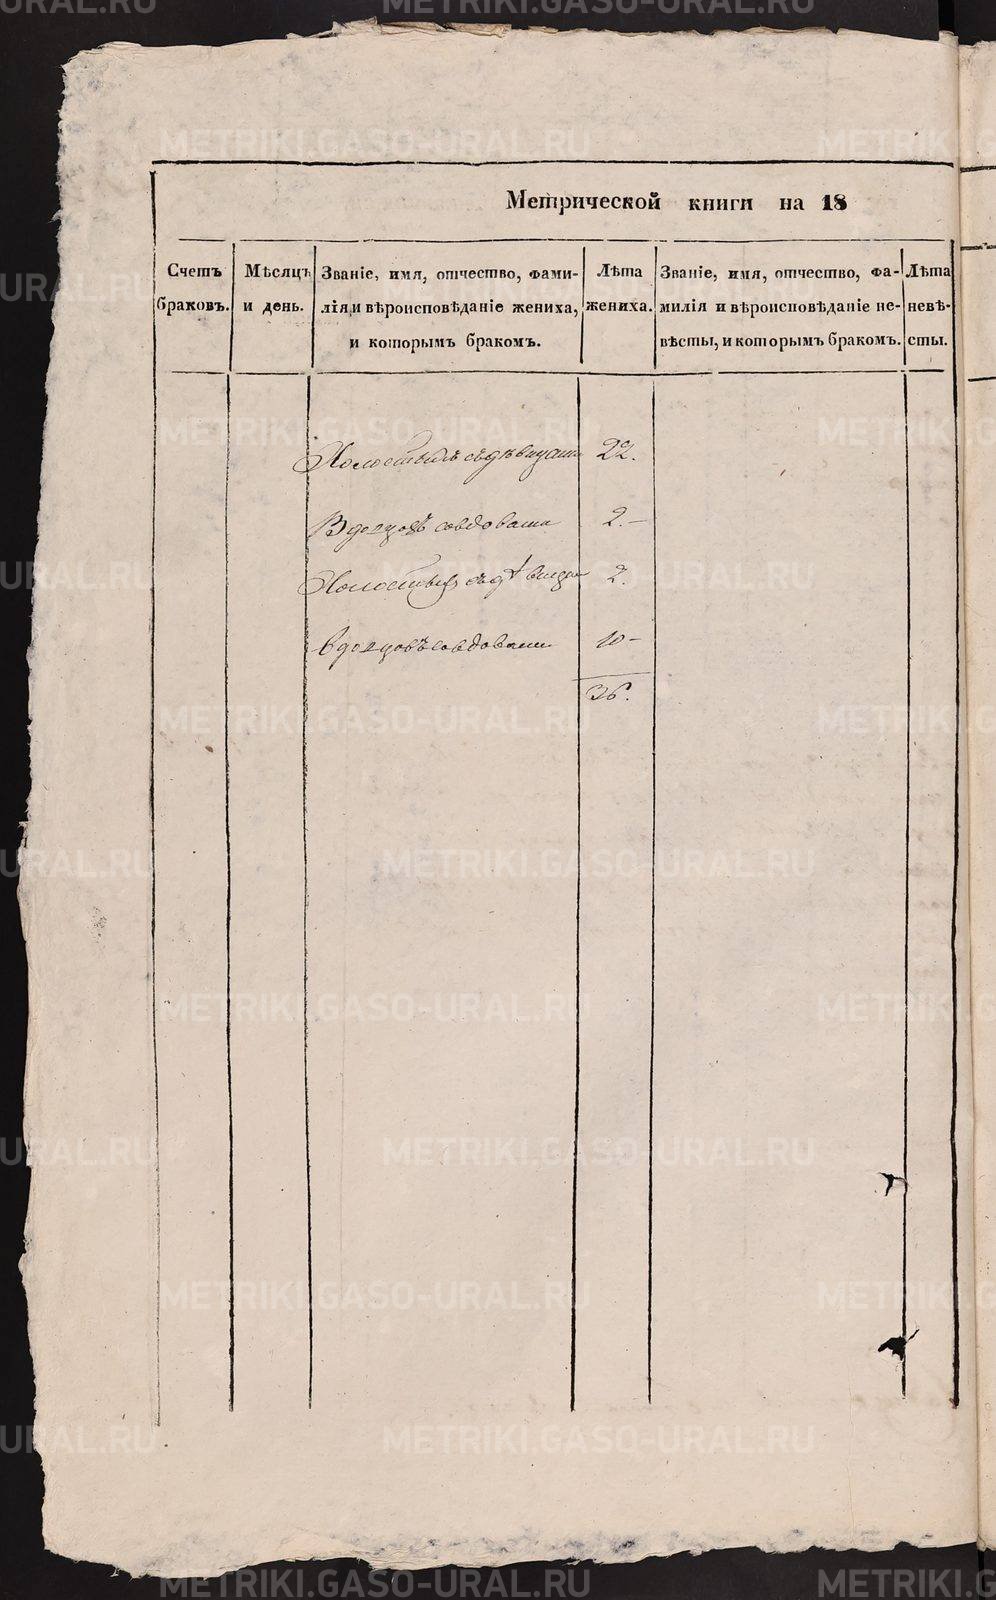 Метрической книги на 18
Счетъ браковъ.
Мѣсяцъ и день.
Званіе, имя, отчество, фами-
лія, и вѣроисповѣданіе жениха,
и которымъ бракомъ.
Лѣта
жениха.
Званіе, имя, отчество, фа-
милія и вѣроисповѣданіе не-
вѣсты, и которымъ бракомъ.
Лѣта
невѣ-
сты.
Холостыхъ съ дѣвицами 22.
Вдовцовъ со вдовами 2.—
Холостыхъ съ дѣвицами 2.
вдовцовъ со вдовами 10—
36.
METRIKI.GASO-URAL.RU